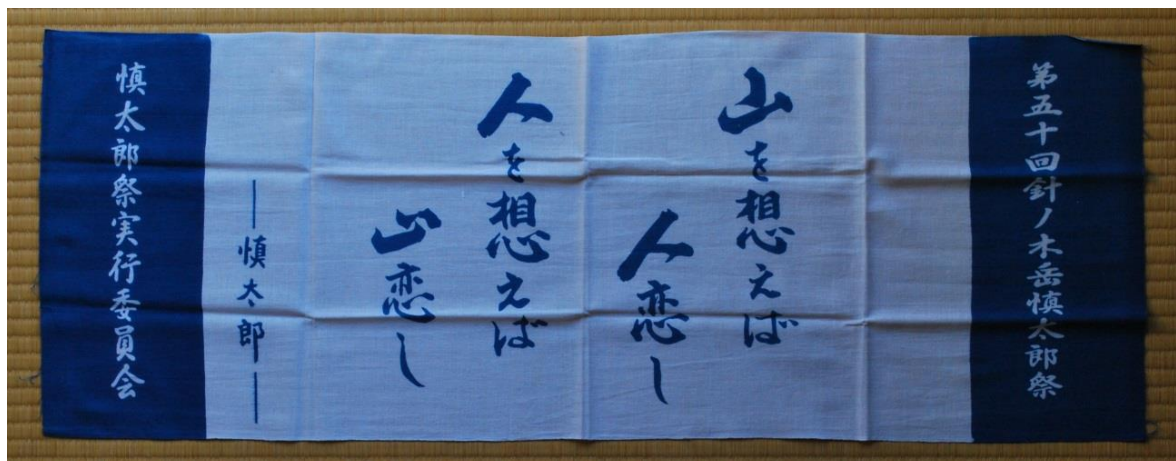 第五十回針ノ木岳慎太郎祭
山を想えば
人恋し
人を想えば
山恋し
―慎太郎―
慎太郎祭実行委員会